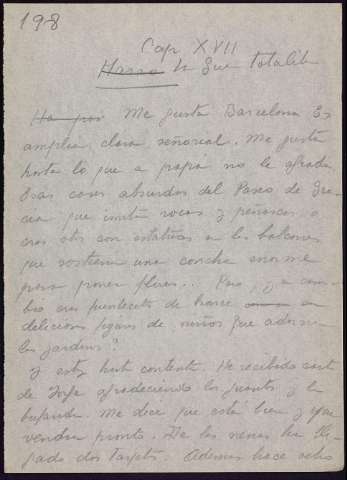 198
Cap XVII
Me gusta Barcelona Es
amplia, clara, señorial. Me gusta
hasta lo que a papá no le agrada
Esas casas absurdas del Paseo de Gra
cia que imitan rocas y peñascos o
esas otras con estatuas en los balcones
que sostienen una concha enorme
para poner flores... Pero, y a cam
bio esas fuentecitas de bronce en
deliciosas figuras de niños que adornan
los jardines?
Y estoy muy contenta. He recibido carta
de Jorge agradeciendo los guantes y la
bufanda. Me dice que está bien y que
vendrá pronto. De las nenas ha lle
gado dos tarjetas. Además hace ocho